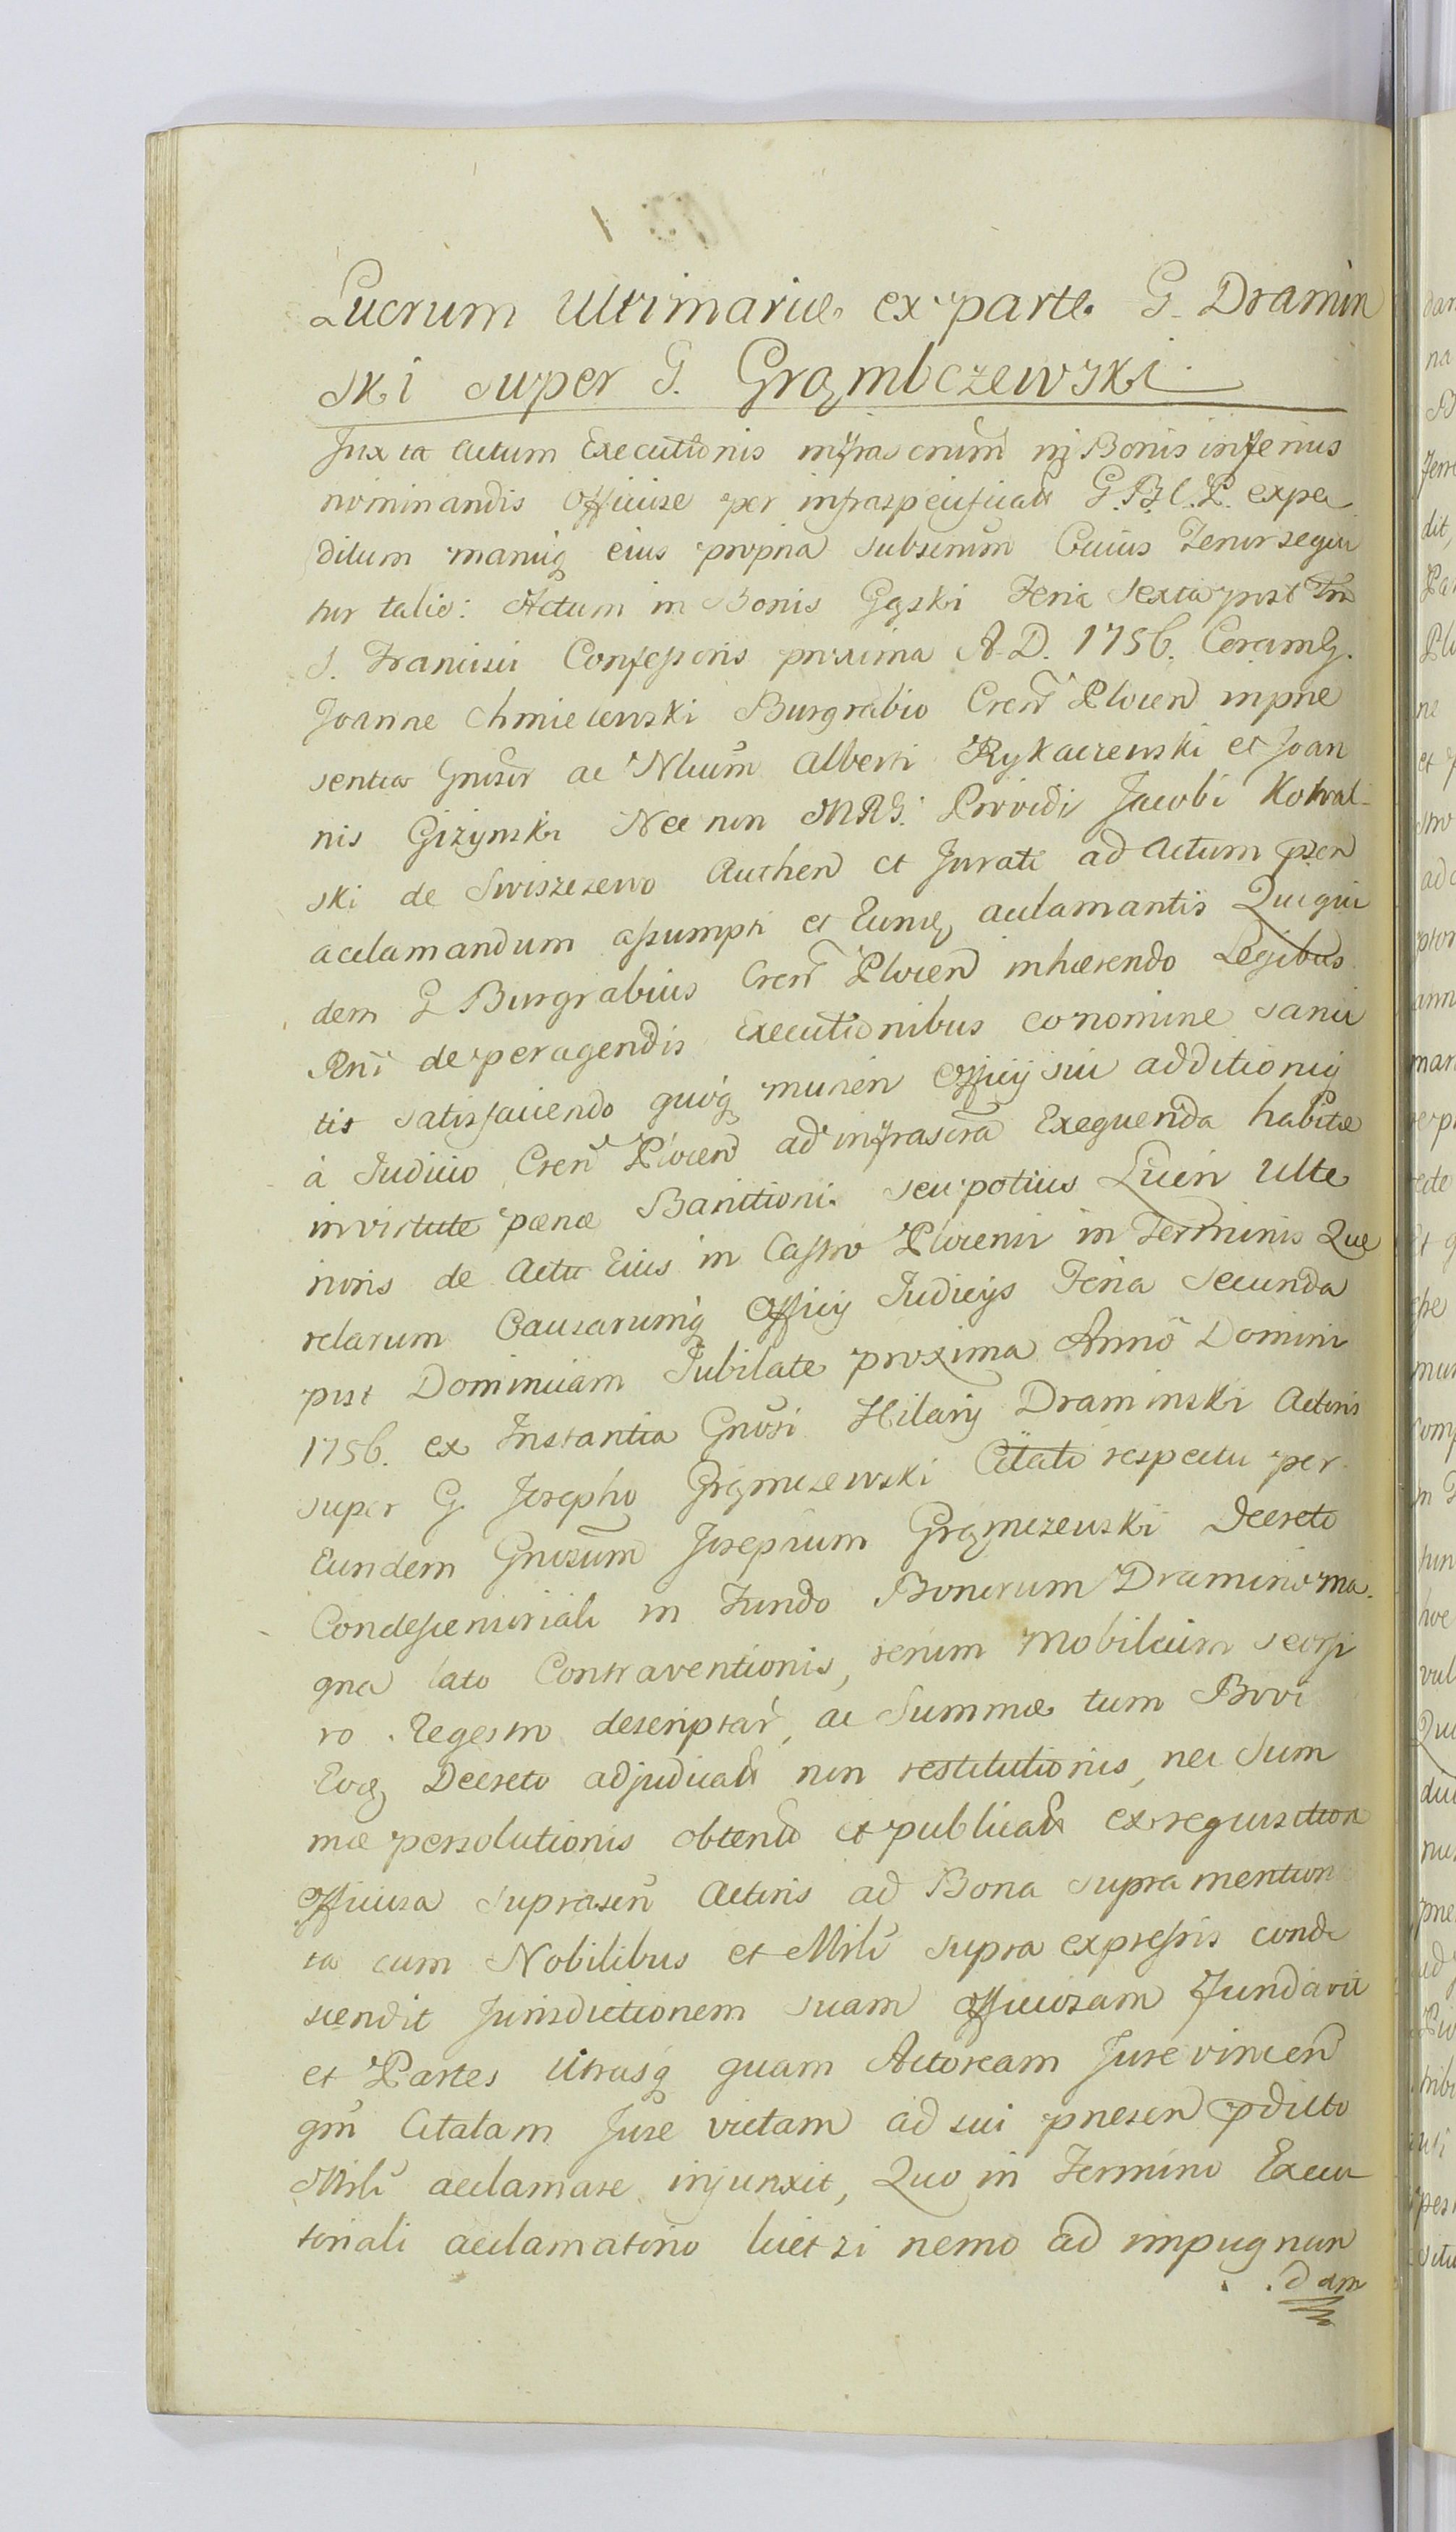 Lucrum Ultimariæ ex parte G. Dramin
ski super G. Grąmbczewski
Juxta Actum Executionis infrascrum in Bonis inferius
nominandis Officiose per infraspecificatt G. B. C. P. expe
ditum manuq eius propria subscrum Cuius Tenor sequi
tur talis: Actum in Bonis Gąski Feria Sexta post Fm
S. Francisci Confessoris proxima A. D. 1756. Coram G.
Joanne Chmielewski Burgrabio Cren Plocen in præ
sentia Gnosor ac Nbium Alberti Rykaczewski et Joan
nis Giżynski Nec non MRG. Providi Jacobi Kowal
ski de Swiszczewo Authen et Jurati ad Actum præn
acclamandum assumpti et Eumq acclamantis Qui qui
dem G Burgrabius Cren Plocen inhærendo Legibus
Rni de peragendis Executionibus eo nomine sanci
tis satisfaciendo quoq muneri Officij sui additioniq
à Judicio Cren Plocen ad infrascra Exequenda habitæ
in virtute pænæ Banitionis seu potius Lucri Ulte
rioris de Actu Eius in Castro Plocensi in Terminis Que
relarum Causarumq Officij Judicijs Feria Secunda
post Dominicam Jubilate proxima Anno Domini
1756. ex Instantia Gnosi Hilarij Draminski Actoris
super G Josepho Grąmczewski Citato respectu per
Eundem Gnosum Josephum Grąmczewski Decreto
Condescensoriali in Fundo Bonorum Dramino ma
gna lato Contraventionis, rerum Mobilium seorsi
vo Regestro descriptar, ac Summæ tum Bovi
Eoq Decreto adjudicatt non restitutionis, nec Sum
mæ persolutionis obtentt et publicatt ex requisitione
Officiosa suprascri Actoris ad Bona supra mentiona
ta cum Nobilibus et Mrli supra expressis conde
scendit Jurisdictionem suam officiosam fundavit
et Partes Utrasq quam Actoream Jure vincen
qm Citatam Jure victam ad sui præsen pdicto
Mrli acclamare injunxit, Quo in Termino Execu
toriali acclamatorio licet si nemo ad impugnan
dam